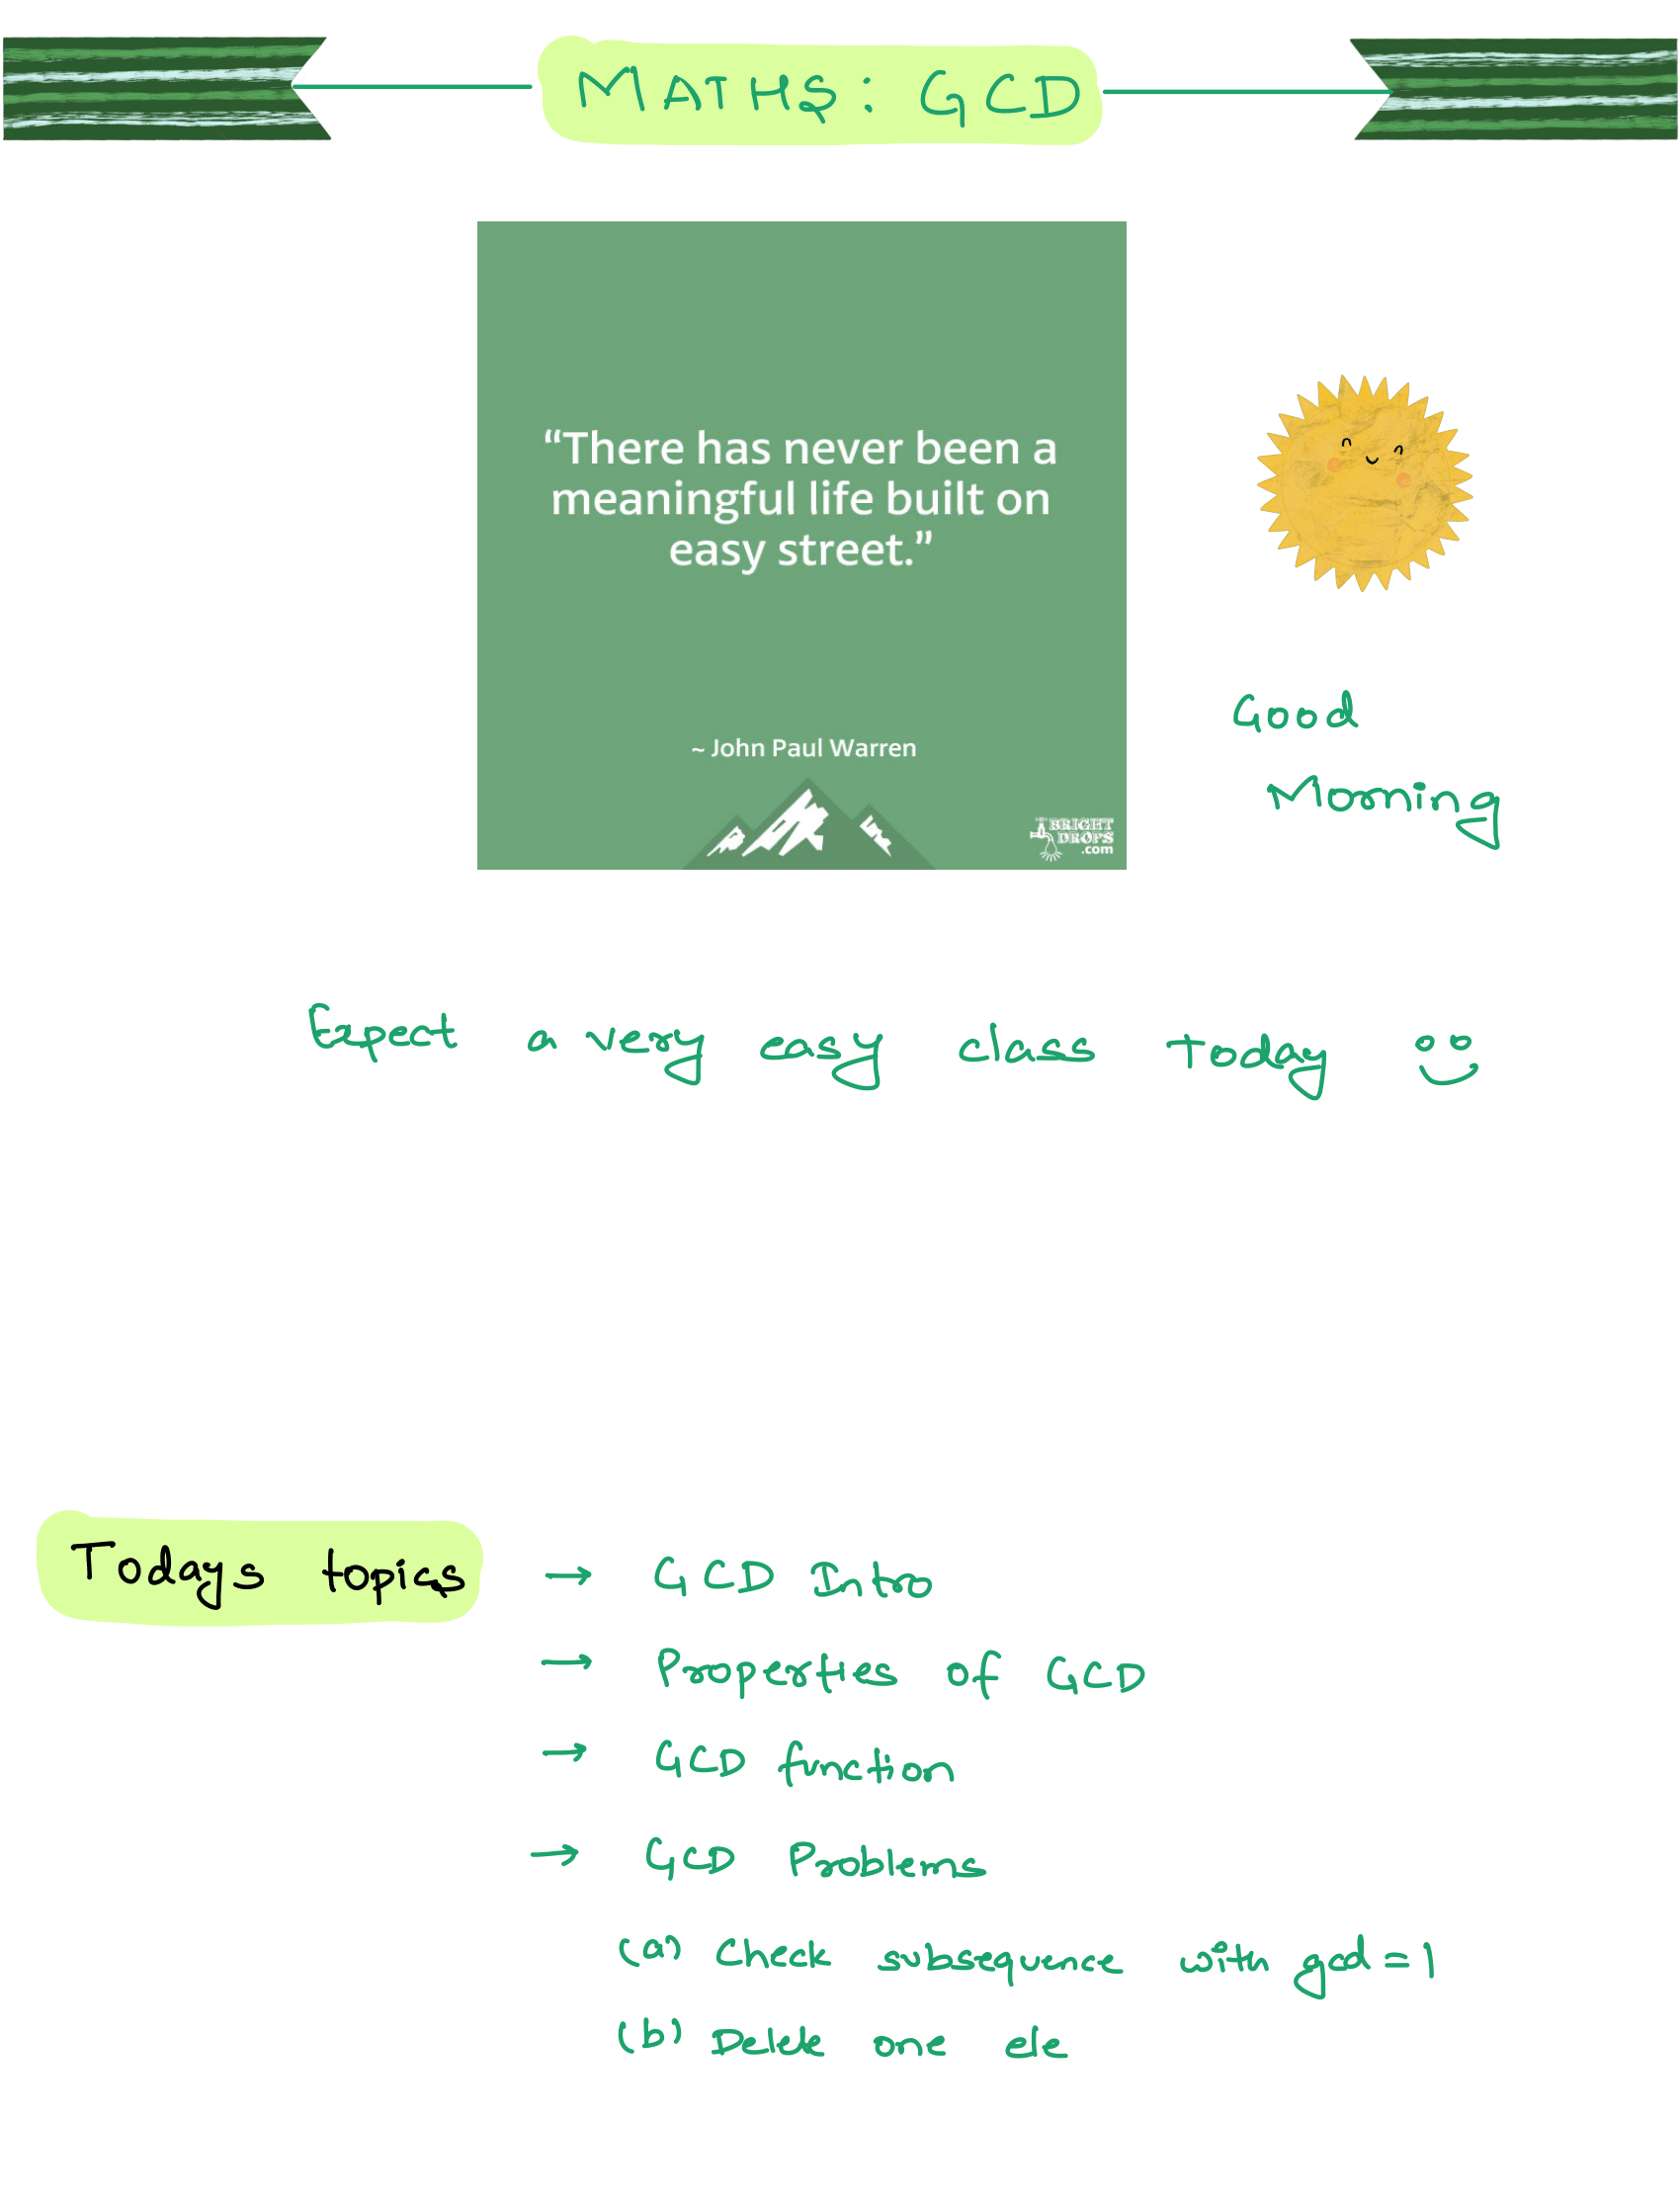 MATHS: GCD
“There has never been a
meaningful life built on
easy street.”
~ John Paul Warren
BRIGHT
DROPS
.com
Good
Morning
Expect a very easy class today
Todays topics → GCD Intro
→ Properties of GCD
→ GCD function
→ GCD Problems
(a) Check subsequence with gcd = 1
(b) Delete one ele